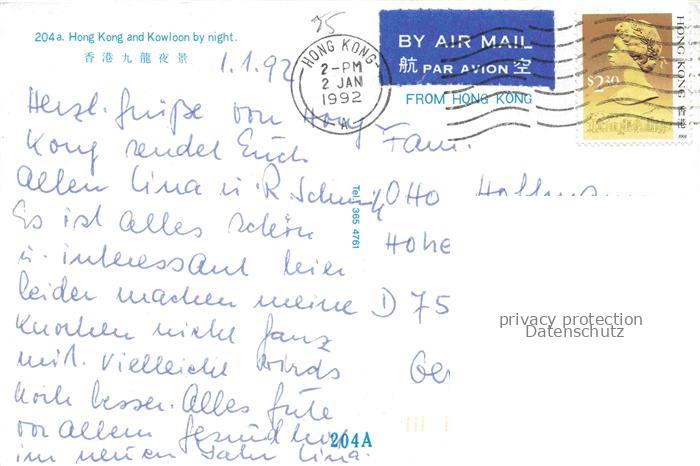 35
204a. Hong Kong and Kowloon by night.
香港九龍夜景
1.1.92
HONG KONG
2-PM
2 JAN
1992
A
BY AIR MAIL
航 PAR AVION 空
FROM HONG KONG
HONG KONG 香港
$2.30
Herzl. Grüße von Hong
Kong sendet Euch
allen Lina u. R.
Es ist alles schön
u. interessant hier
leider machen meine
Knochen nicht ganz
mit. Vielleicht wirds
noch besser. Alles Gute
vor allem Gesundheit
im neuen Jahr Lina.
Tel: 365 4761
Fam.
Otto
Hohe
D 75
Ger
privacy protection
Datenschutz
204A